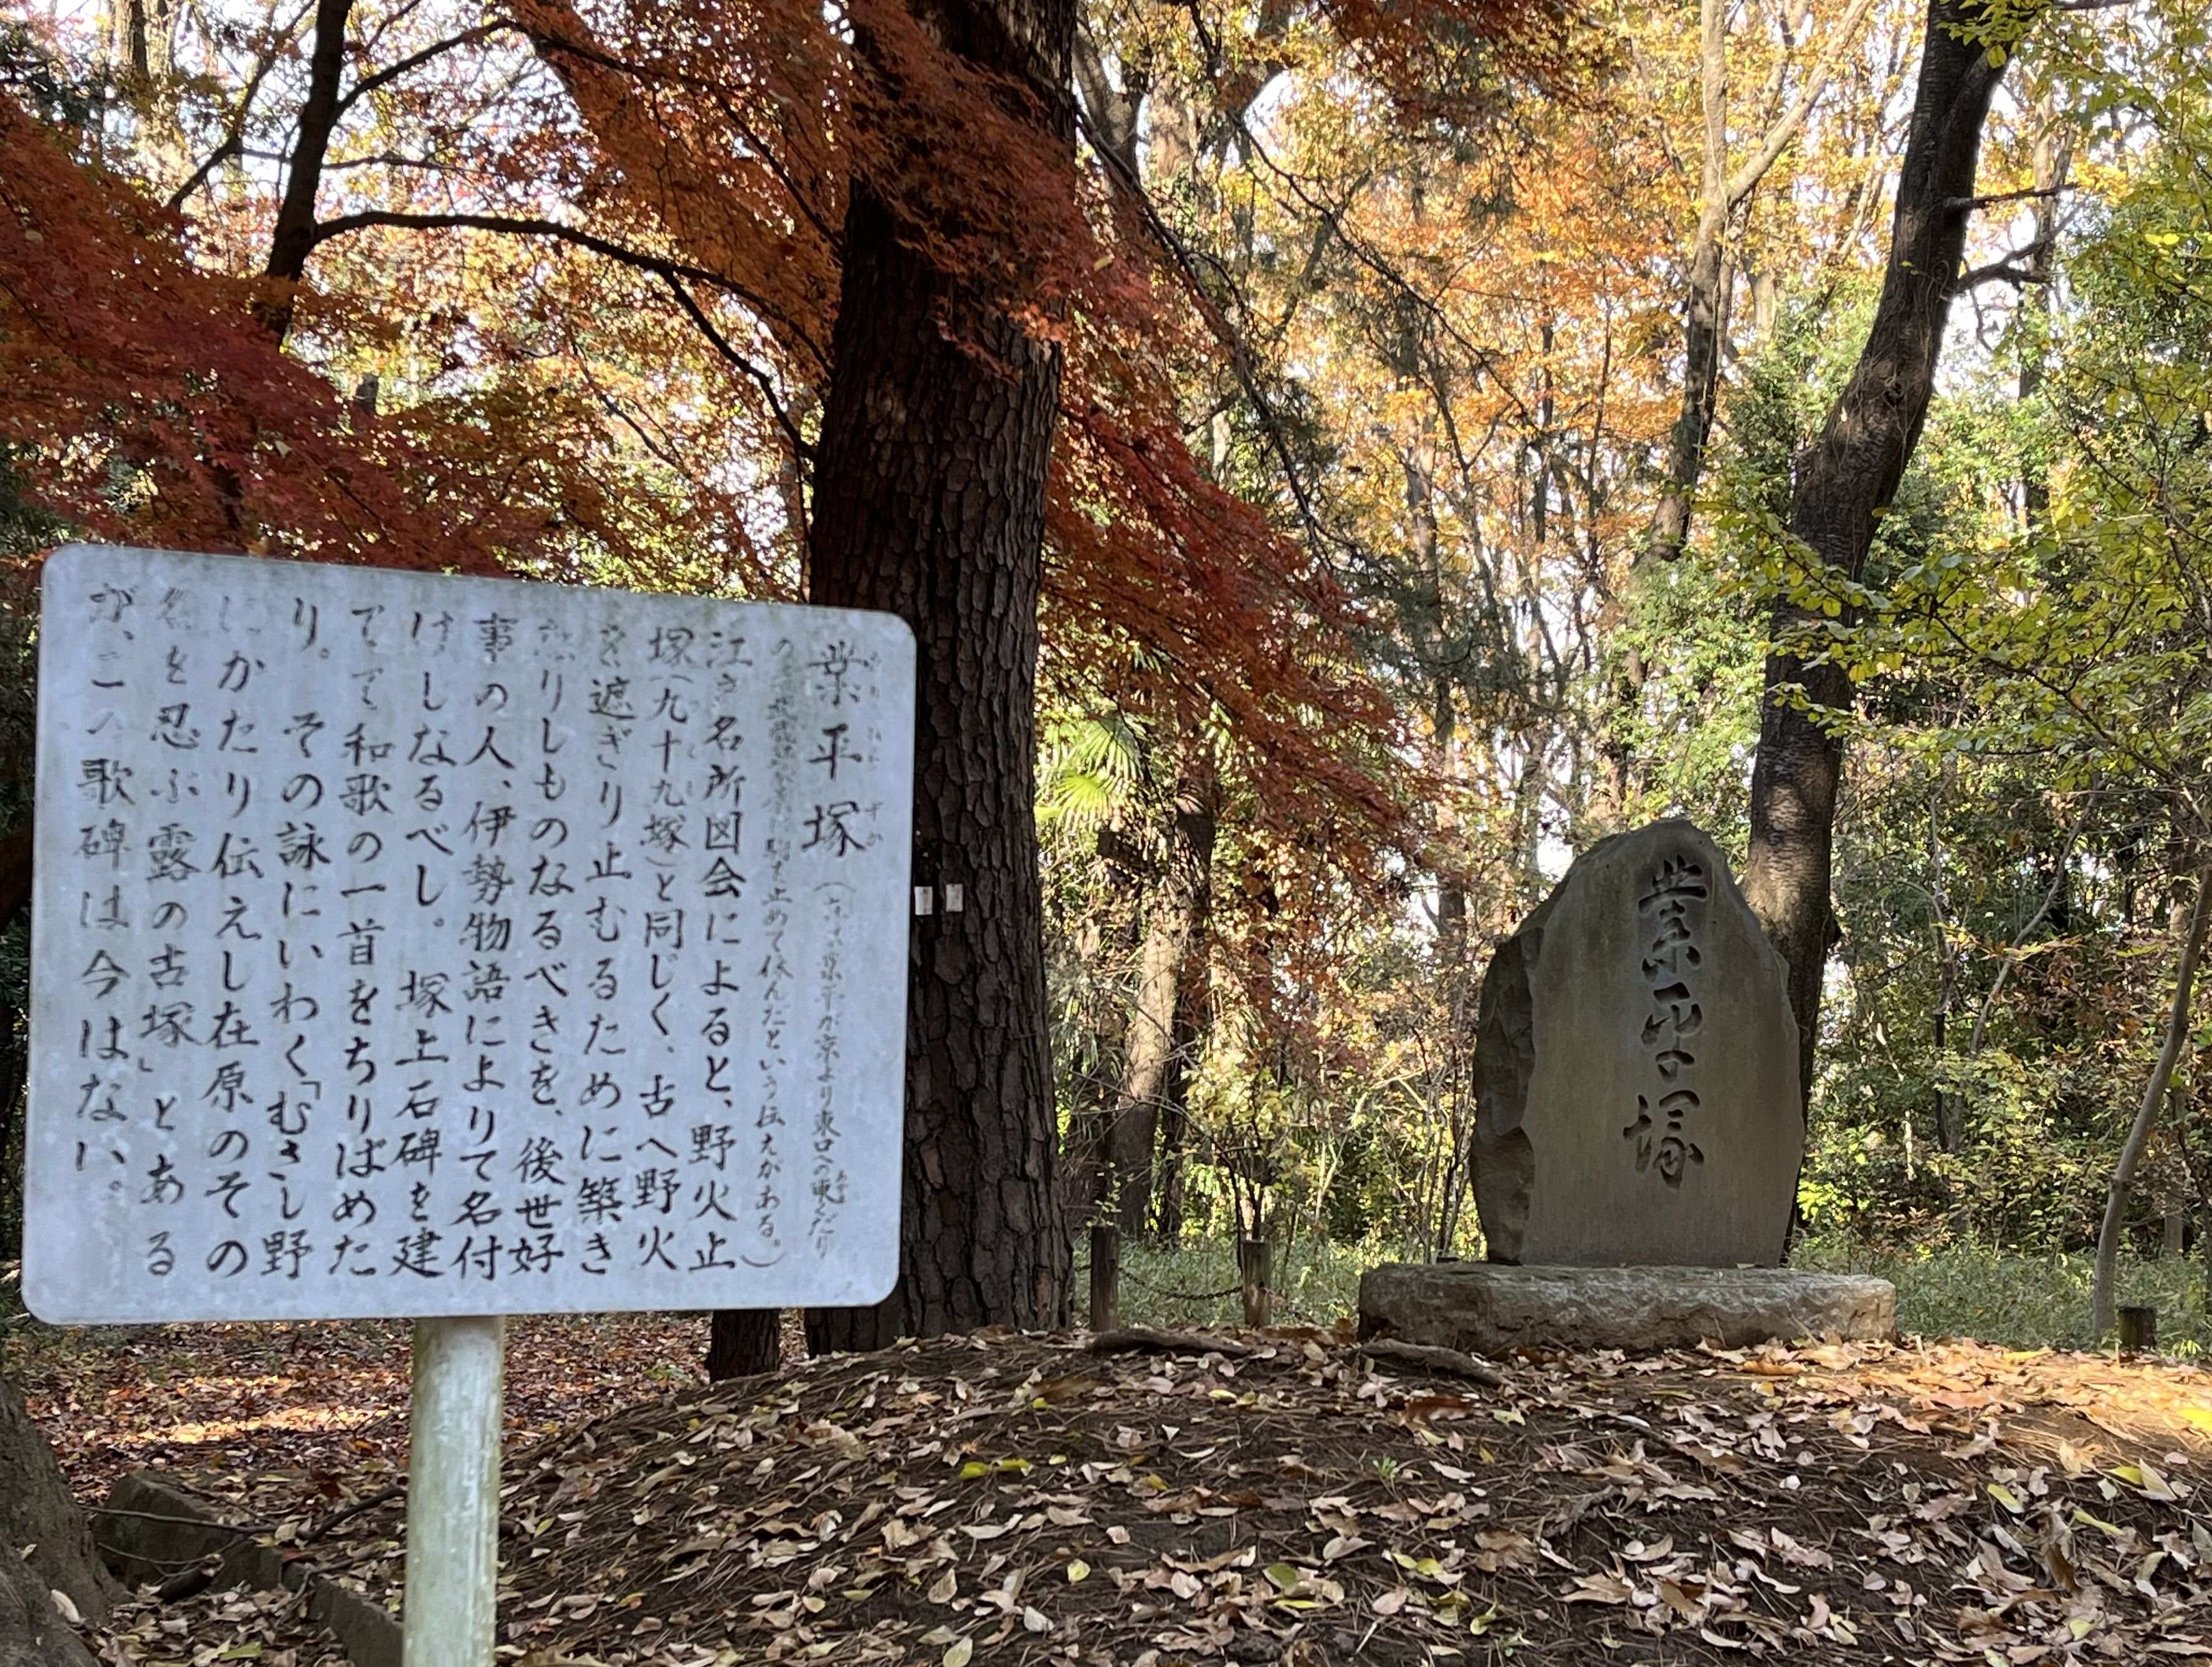 業平塚
なりひらづか
(在原業平が京より東口への東くだり
あずま
の
駒を止めて休んだという伝えがある。)
江戸名所図会によると、野火止
塚(九十九塚)と同じく、古へ野火
を遮ぎり止むるために築き
たりしものなるべきを、後世好
事の人、伊勢物語によりて名付
けしなるべし。塚上石碑を建
てて和歌の一首をちりばめた
り。その詠にいわく「むさし野
にかたり伝えし在原のその
名を忍ぶ露の古塚」とある
が、この歌碑は今はない。
業平塚